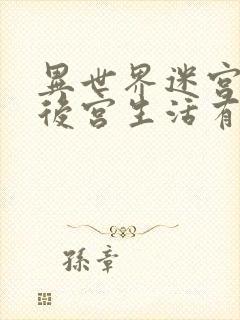 異世界迷宮
後宮生活有
孫章